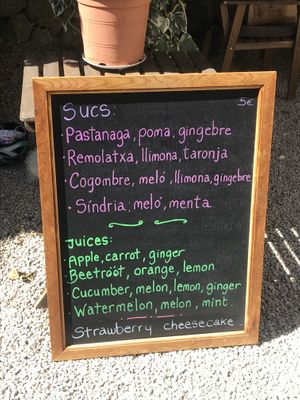 Sucs: 5€
• Pastanaga, poma, gingebre
• Remolatxa, llimona, taronja
• Cogombre, meló, llimona, gingebre
• Síndria, meló, menta
Juices:
• Apple, carrot, ginger
• Beetroot, orange, lemon
• Cucumber, melon, lemon, ginger
• Watermelon, melon, mint.
Strawberry cheesecake